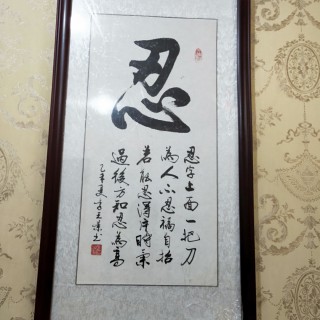 忍
忍字上面一把刀
為人不忍禍自招
若能忍得片時氣
過後方知忍為高